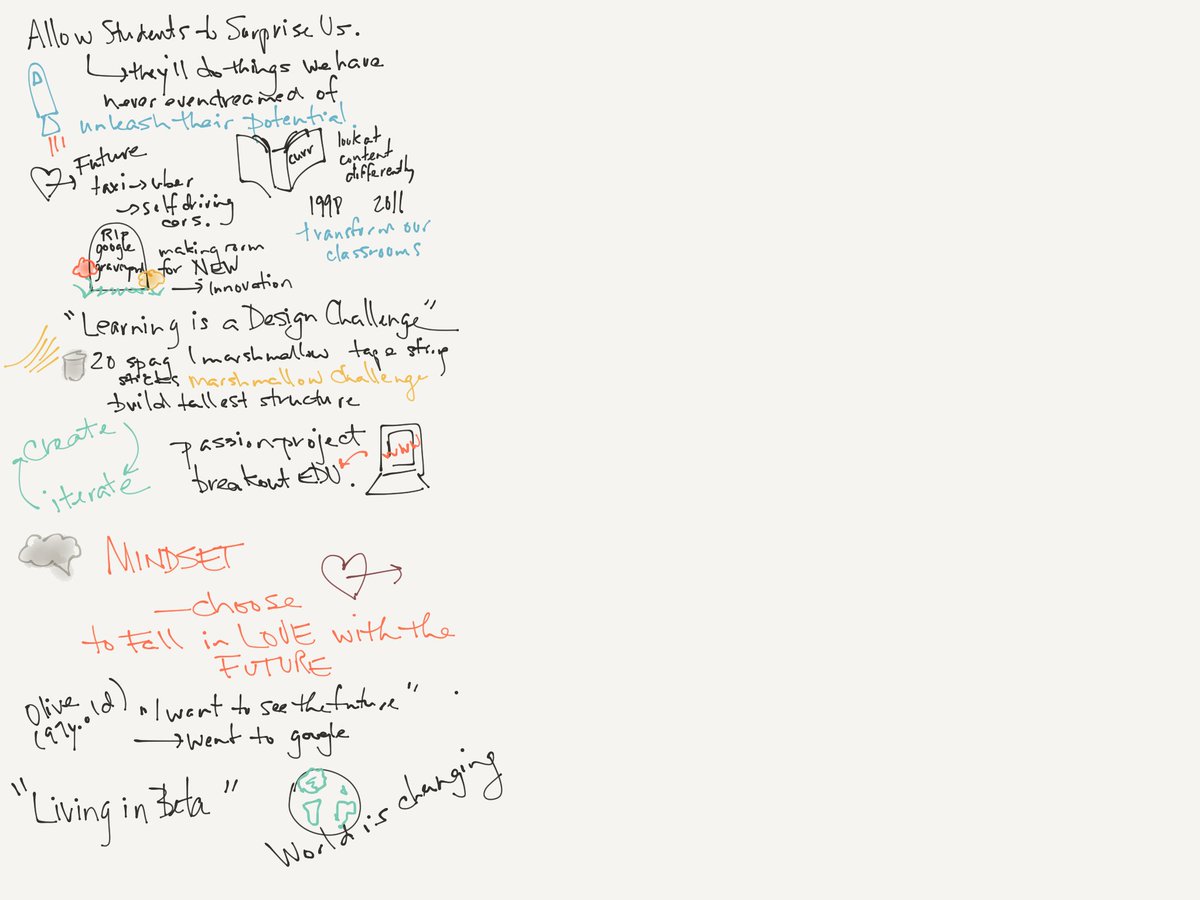 Allow Students to Surprise Us.
they'll do things we have
never even dreamed of
unleash their potential.
Future
taxi → uber
→ self driving
cars.
curr
look at
content
differently
1998 2011
transform our
classrooms
RIP
google
graveyard
making room
for NEW
→ innovation
"Learning is a Design Challenge"
20 spag 1 marshmallow tape string
sticks marshmallow challenge
build tallest structure
create
iterate
passion project
breakout EDU.
www
MINDSET
— choose
to Fall in LOVE with the
FUTURE
Olive
(97y.old) "I want to see the future"
→ went to google
"Living in Beta"
World is changing